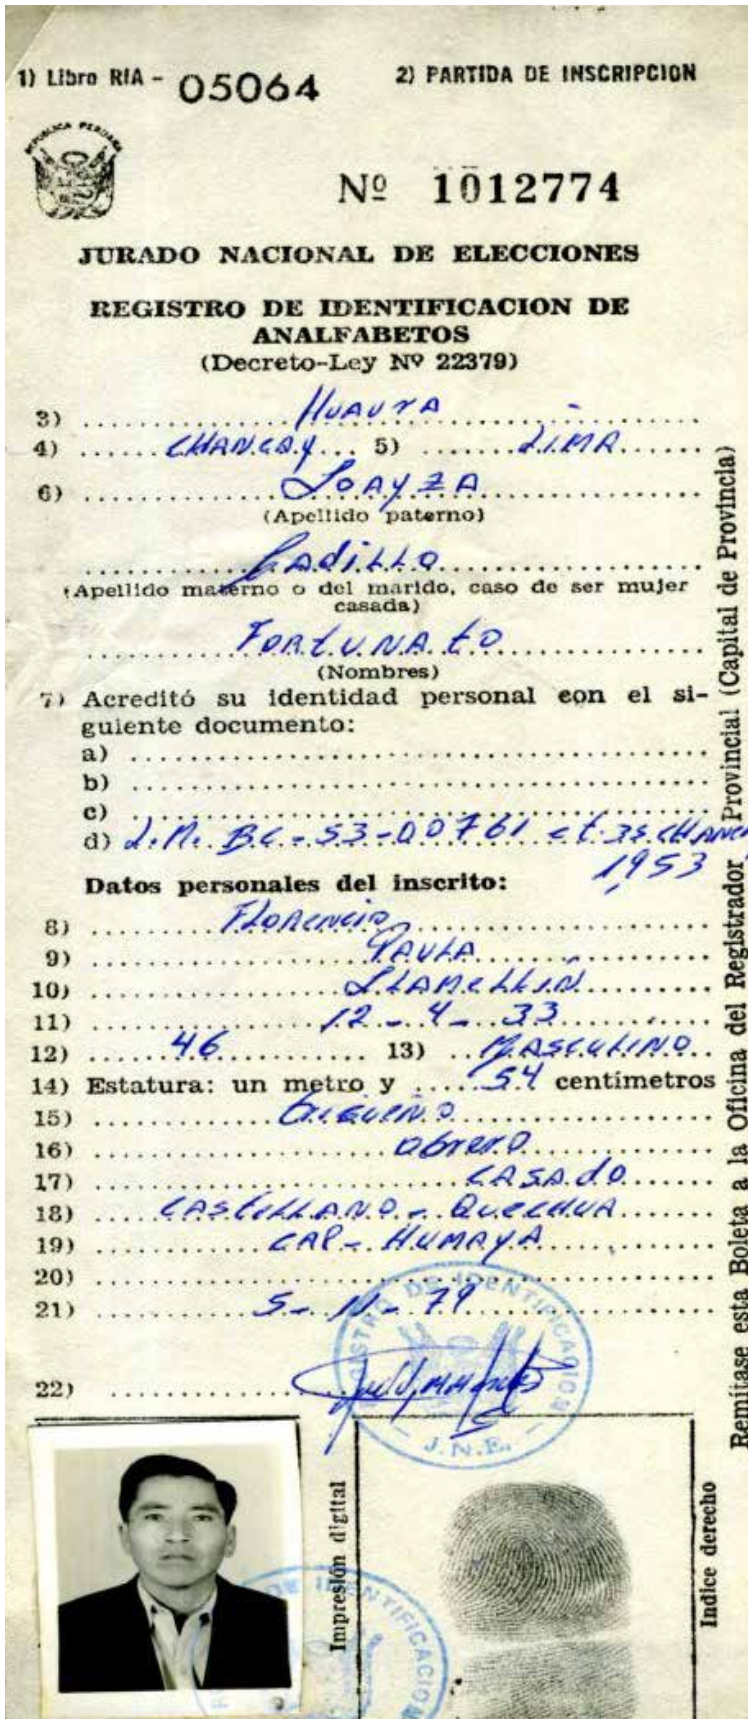 1) Libro RIA - 05064 2) PARTIDA DE INSCRIPCION
REPUBLICA PERUANA
Nº 1012774
JURADO NACIONAL DE ELECCIONES
REGISTRO DE IDENTIFICACION DE
ANALFABETOS
(Decreto-Ley Nº 22379)
3) HUAURA
4) CHANCAY 5) LIMA
6) LOAYZA
(Apellido paterno)
CADILLO
(Apellido materno o del marido, caso de ser mujer
casada)
FORTUNATO
(Nombres)
7) Acreditó su identidad personal con el si-
guiente documento:
a)
b)
c)
d) L.M. BC-53-00761 ct. 35 CHANCAY
1953
Datos personales del inscrito:
8) FLORENCIO
9) PAULA
10) LLAMELLIN
11) 12-4-33
12) 46 13) MASCULINO
14) Estatura: un metro y 54 centímetros
15) TRIGUEÑO
16) obrero
17) CASADO
18) CASTELLANO - QUECHUA
19) CAP - HUMAYA
20)
21) 5-11-79
REGISTRO DE IDENTIFICACION
22)
J.N.E.
Impresión digital
Indice derecho
Remítase esta Boleta a la Oficina del Registrador Provincial (Capital de Provincia)
DE IDENTIFICACION